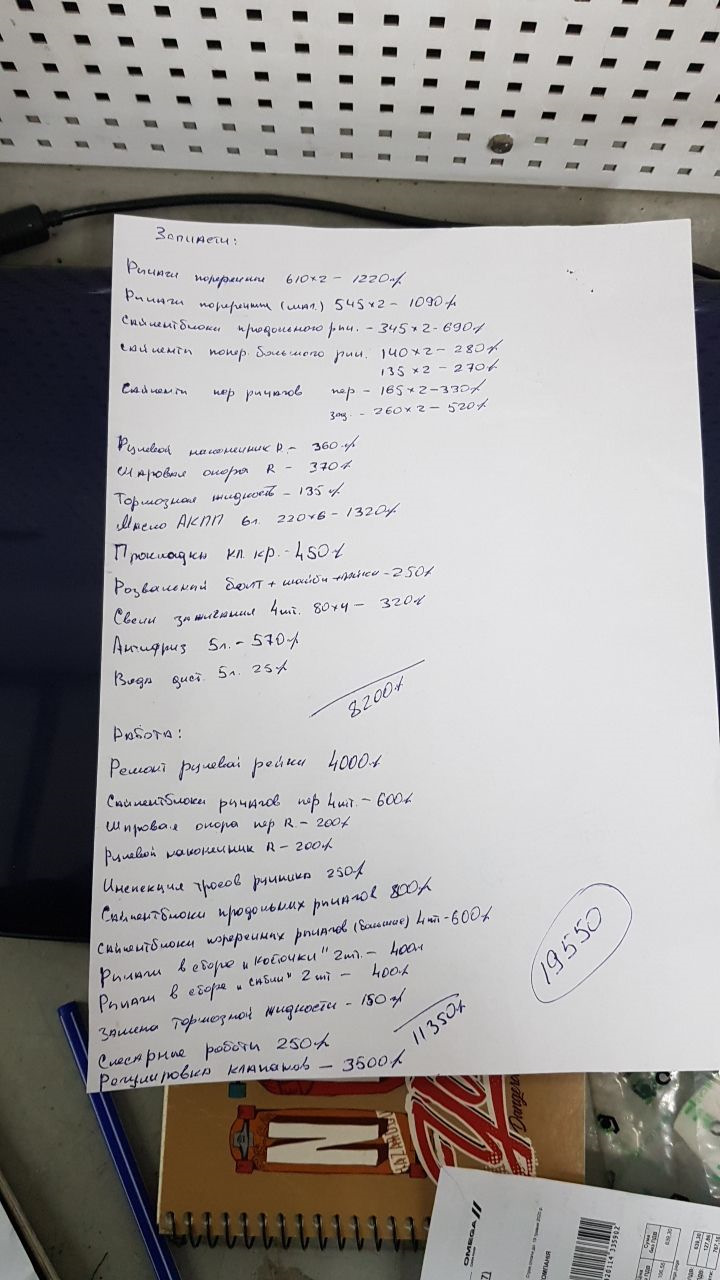 Запчасти:
Рычаги поперечные 610х2 – 1220
Рычаги поперечные (мал.) 545х2 – 1090
Сайлентблоки продольного рыч. – 345х2 – 690
Сайленти попер. большого рыч. 140х2 – 280
135х2 – 270
Сайленти пер рычагов пер – 165х2 – 330
зад. – 260х2 – 520
Рулевой наконечник R – 360
Шаровая опора R – 370
Тормозная жидкость – 135
Масло АКПП 6л. 220х6 – 1320
Прокладка кл. кр. – 450
Розвальный болт + шайбы + гайки – 250
Свечи зажигания 4шт. 80х4 – 320
Антифриз 5л. – 570
Вода дист. 5л. 25
8200
Работа:
Ремонт рулевой рейки 4000
Сайлентблоки рычагов пер 4шт. – 600
Шаровая опора пер R. – 200
Рулевой наконечник R – 200
Инспекция тросов ручника 250
Сайлентблоки продольных рычагов 800
Сайлентблоки поперечных рычагов (большие) 4шт – 600
Рычаги в сборе "косточки" 2шт. – 400
Рычаги в сборе "сабли" 2шт – 400
Замена тормозной жидкости – 150
11350
19550
Слесарные работы 250
Регулировка клапанов – 3500
OMEGA
Dangerous